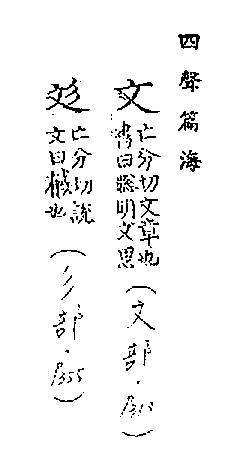 四聲篇海
文
亡分切文章也
書曰聰明文思
(文部·
彣
亡分切說
文曰 也
(彡部·P355)